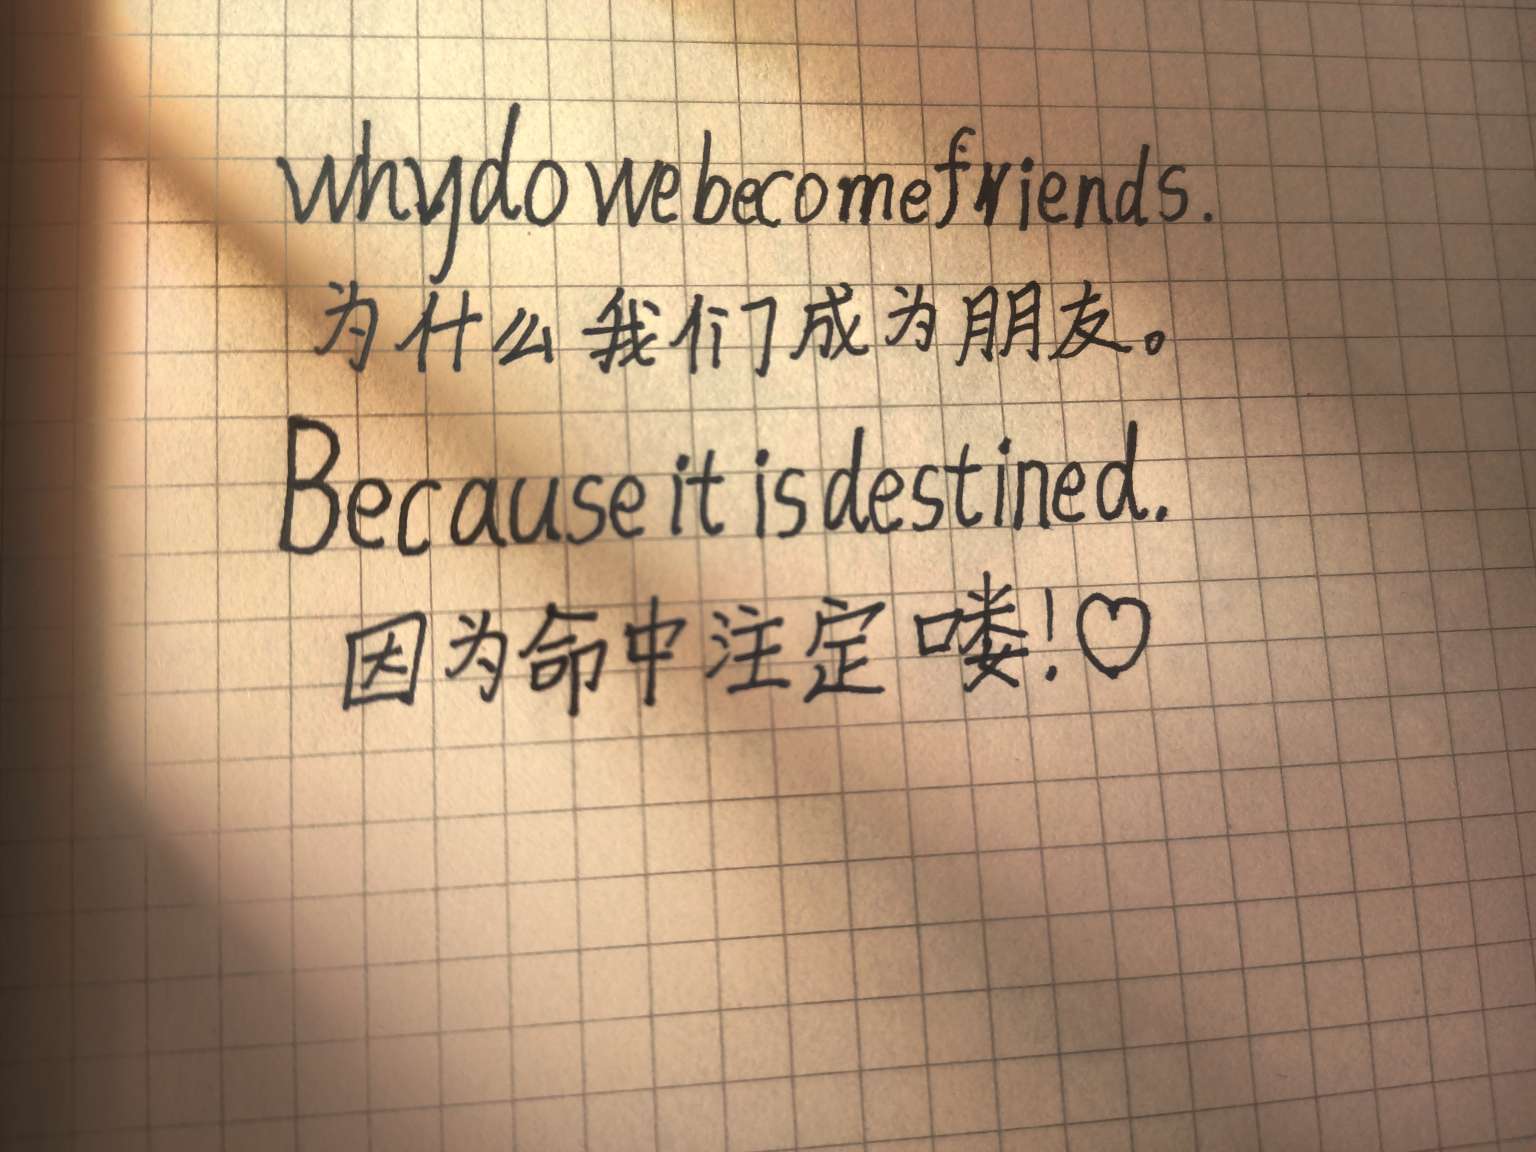 why do we become friends.
为什么我们成为朋友。
Because it is destined.
因为命中注定喽!♡